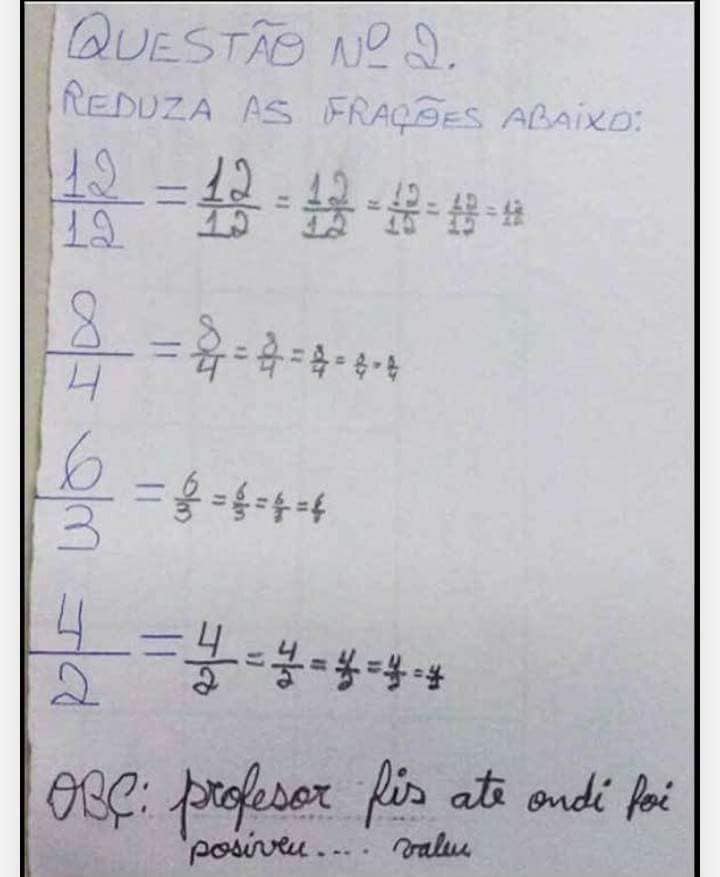 QUESTÃO Nº 2.
REDUZA AS FRAÇÕES ABAIXO:
12/12 = 12/12 = 12/12 = 12/12 = 12/12 = 12/12
8/4 = 8/4 = 8/4 = 8/4 = 8/4 = 8/4
6/3 = 6/3 = 6/3 = 6/3 = 6/3
4/2 = 4/2 = 4/2 = 4/2 = 4/2 = 4/2
OBÇ: profesor fis ate ondi foi
posiveu.... valeu